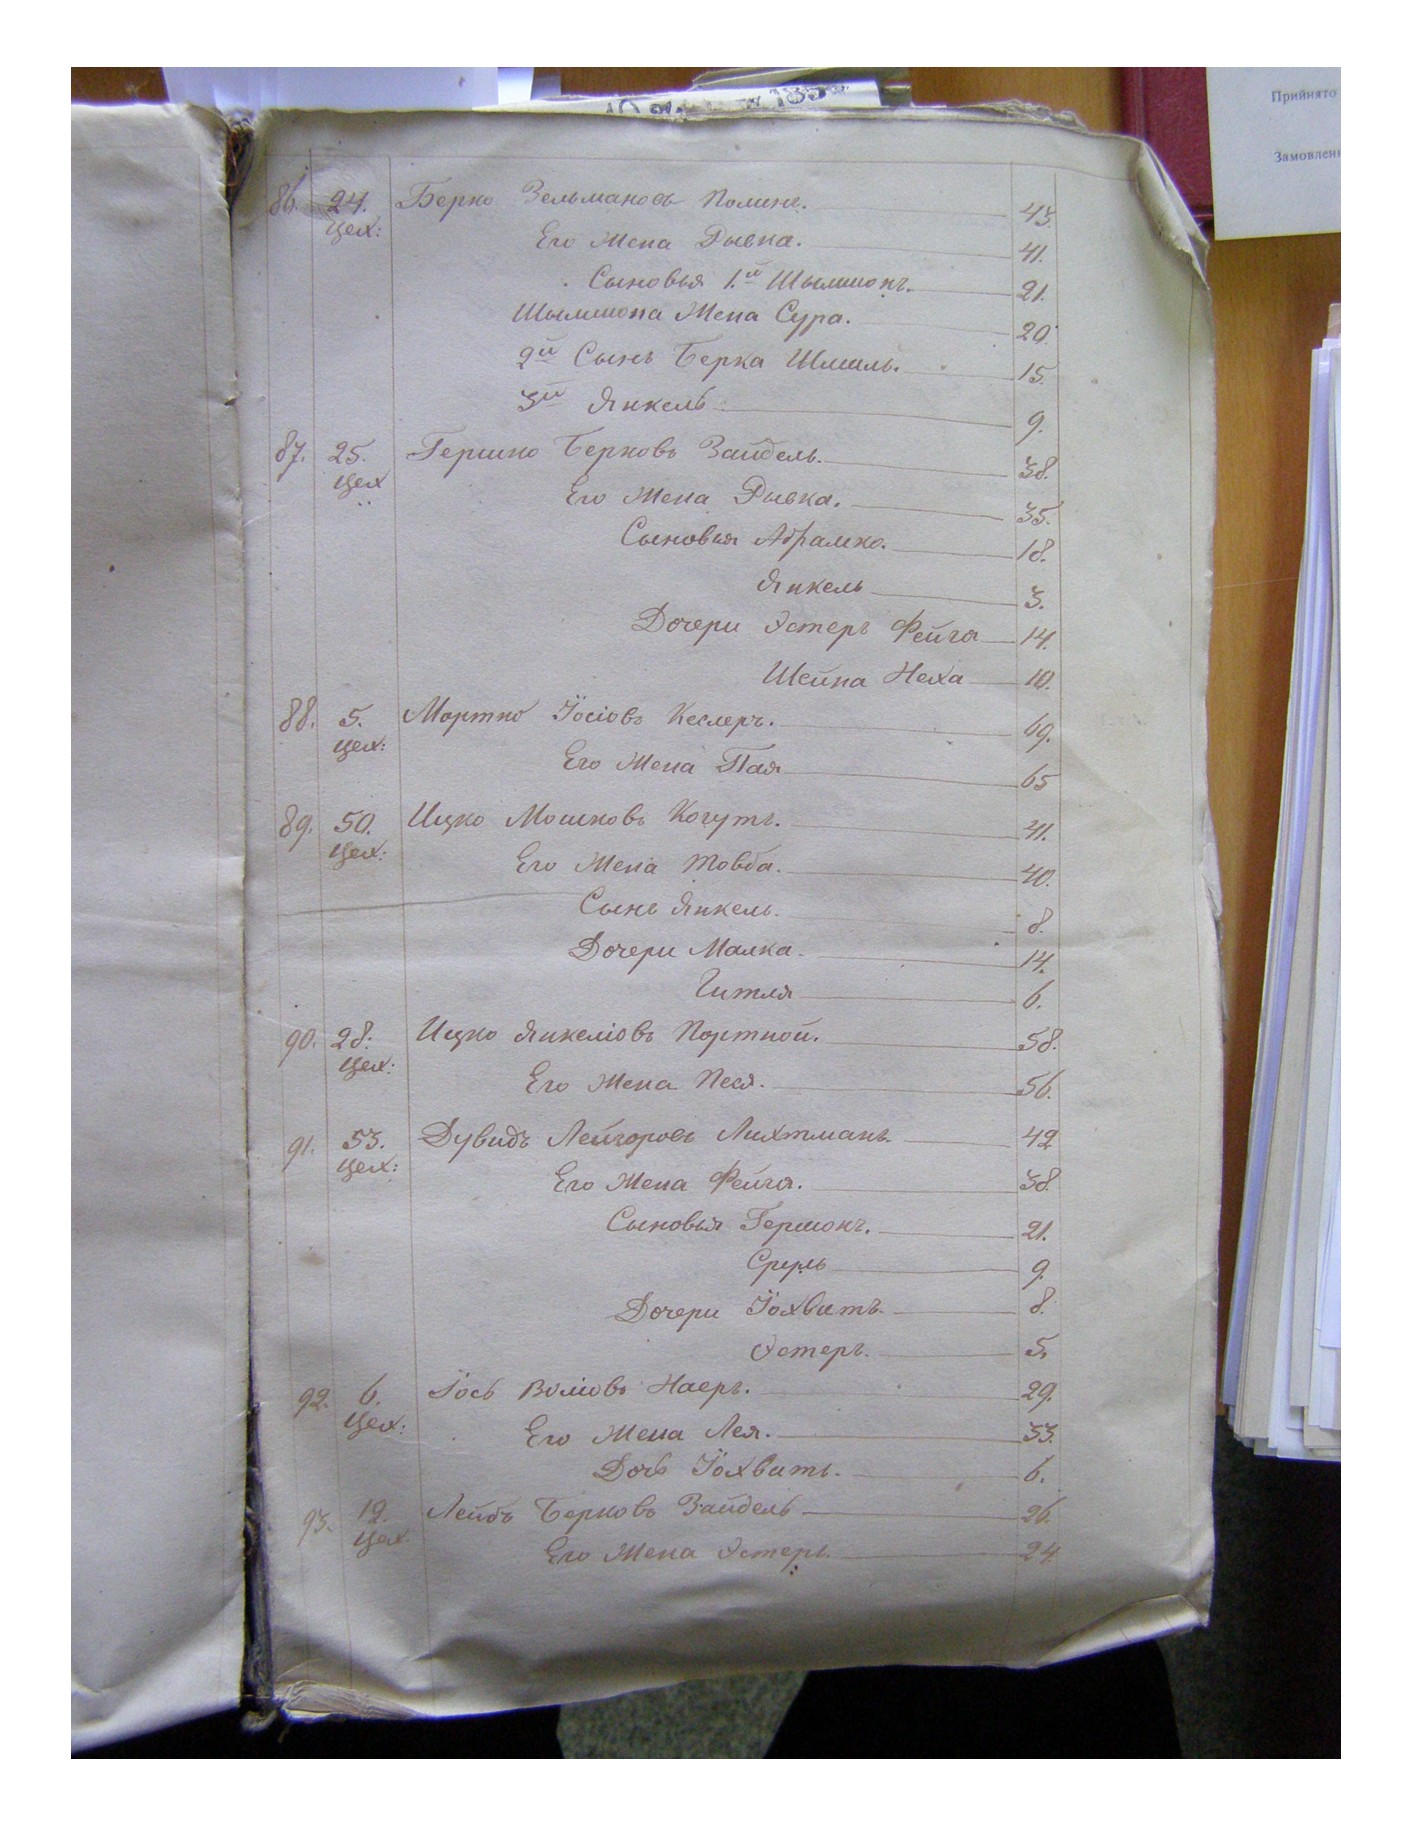 Прийнято
Замовлен
86. 24. Берко Зельмановъ Полине. 43.
цех:
Его Жена Рывка. 41.
Сыновья 1.й Шымшонъ. 21.
Шымшона Жена Сура. 20.
2й Сынъ Берка Шмиль. 15.
3й Янкель 9.
87. 25. Гершко Берковъ Зайдель. 38.
цех
Его Жена Рывка. 35.
Сыновья Абрамко. 18.
Янкель 3.
Дочери Эстеръ Фейга 14.
Шейна Неха 10.
88. 5. Мортко Іосіовъ Кеслеръ. 69.
цех:
Его Жена Пая 65
89. 50. Ицко Мошковъ Когутъ. 41.
цех:
Его Жена Товба. 40.
Сынъ Янкель. 8.
Дочери Малка. 14.
Гитля 6.
90. 28: Ицко Янкеліовъ Портной. 58.
цех:
Его Жена Песя. 56.
91. 53. Дувидъ Лейзоровъ Лихтманъ. 42
цех:
Его Жена Фейга. 38.
Сыновья Гершонъ. 21.
Сруль 9.
Дочери Іохвитъ. 8.
Эстеръ. 5.
92. 6. Іось Воліовъ Наеръ. 29.
цех:
Его Жена Лея. 33.
Дочь Іохвитъ. 6.
93. 12. Лейбъ Берковъ Зайдель 26.
цех.
Его Жена Эстеръ. 24